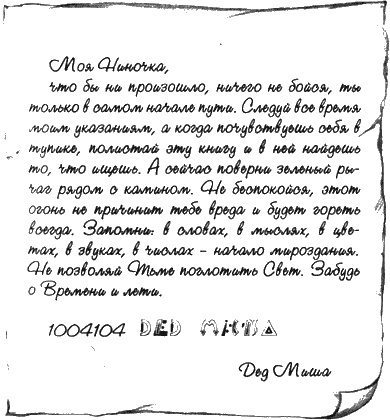 Моя Ниночка,
что бы ни произошло, ничего не бойся, ты
только в самом начале пути. Следуй все время
моим указаниям, а когда почувствуешь себя в
тупике, полистай эту книгу и в ней найдешь
то, что ищешь. А сейчас поверни зеленый ры-
чаг рядом с камином. Не беспокойся, этот
огонь не причинит тебе вреда и будет гореть
всегда. Запомни: в словах, в мыслях, в цве-
тах, в звуках, в числах – начало мироздания.
Не позволяй Тьме поглотить Свет. Забудь
о Времени и лети.
1004104 DED MISA
Дед Миша